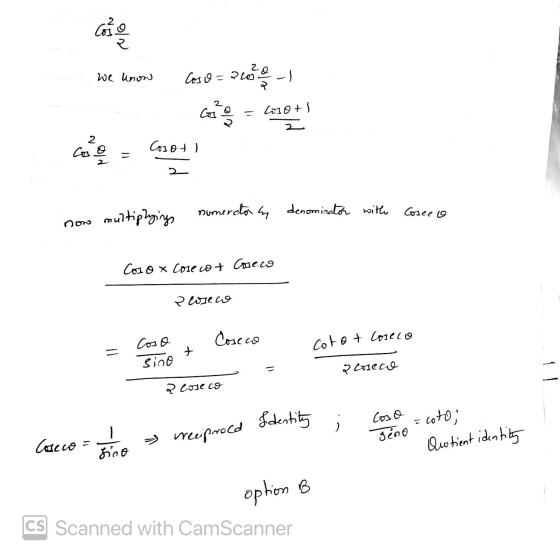 cos²θ/2
we know cosθ = 2cos²θ/2 - 1
cos²θ/2 = cosθ+1/2
cos²θ/2 = cosθ+1/2
now multiplying numerator & denominator with cosecθ
cosθ × cosecθ + cosecθ / 2cosecθ
= cosθ/sinθ + cosecθ / 2cosecθ = cotθ + cosecθ / 2cosecθ
cosecθ = 1/sinθ ⇒ reciprocal Identity ; cosθ/sinθ = cotθ;
Quotient identity
option B
CS Scanned with CamScanner